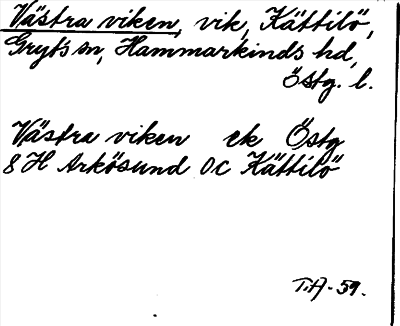 Västra viken, vik, Kättilö,
Gryts sn, Hammarkinds hd,
Östg. l.
Västra viken ek Östg
8 H Arkösund OC Kättilö
T.A-59.